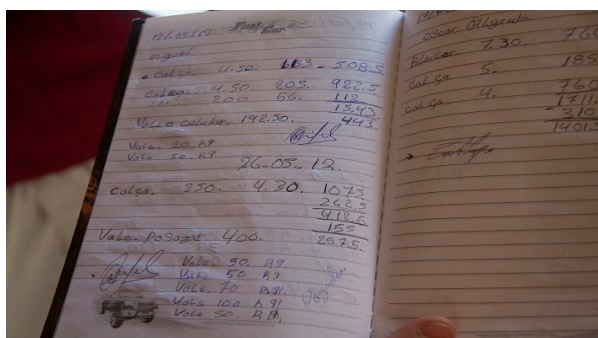 12/05/12
Miguel.
Calça. 4.50. 113 - 508.5
Calça 4.50 205. 922.5
200 66. 112
15.43
Vale o celular. 192.50. 443.
Vale 20 R$
Vale 50. R$
26-05-12.
calça. 250. 4.30. 1075
262.5
412.5
155
Vale. Posage 400. 257.5.
Vale. 50. R$.
Vale 50 R$
Vale. 70 R$.
Vale 100 R$
Vale 50. R$.
Oscar.
7.30. 760
calça 5. 185
calça. 4. 760
1711.
-310
1401.5